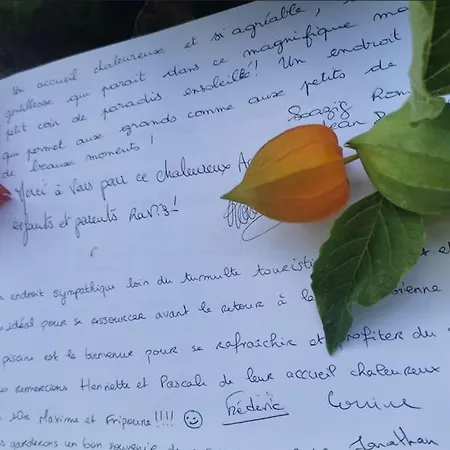 Un accueil chaleureux et si agréable,
gentillesse qui parait dans ce magnifique
petit coin de paradis ensoleillé! Un endroit
qui permet aux grands comme aux petits de
de beaux moments! Soazig
Jean
Merci à Vous pour ce chaleureux
enfants et parents RAVIS!
endroit sympathique loin du tumulte
idéal pour se ressourcer avant le retour à la
est la bienvenue pour se rafraîchir et profiter du
remercions Henriette et Pascale de leur accueil chaleureux
Maxime et Fripoune!!!! Frédéric Corinne
garderons un bon souvenir Jonathan